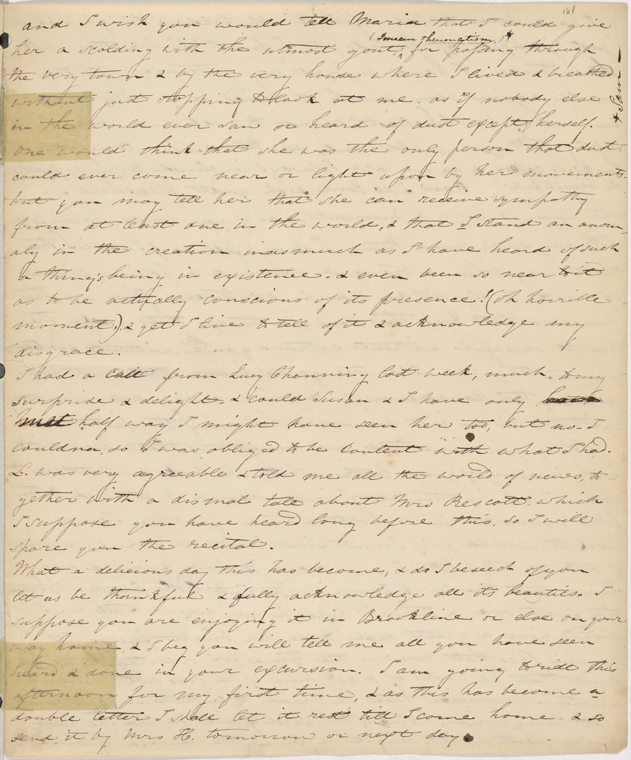 161
and I wish you would tell Maria that I could give
(I mean rheumatism)*
her a scolding with the utmost gout, for passing through
the very town & by the very house where I lived & breathed
without just stopping to look at me. as if nobody else
in the world ever saw or heard of dust except herself.
One would think that she was the only person that dust
could ever come near or light upon by her movements.
but you may tell her that she can receive sympathy
from at least one in the world, & that I stand an anom
aly in the creation inasmuch as I have heard of such
a thing's being in existence. & even been so near to it
as to be actually conscious of its presence! (oh horrible
moment), & yet I live to tell of it & acknowledge my
disgrace.
I had a call from Lucy Channing last week, much to my
surprise & delight. & could Susan & I have only
met half way I might have seen her too, but no. I
couldna, so I was obliged to be content with what I had.
L. was very agreeable & told me all the world of news, to-
gether with a dismal tale about Mrs Prescott which
I suppose you have heard long before this, so I will
spare you the recital.
What a delicious day this has become, & do I beseech of you
let us be thankful & fully acknowledge all its beauties. I
suppose you are enjoying it in Brookline or else on your
way home & I beg you will tell me all you have seen
heard & done in your excursion. I am going to ride this
afternoon for my first time, & as this has become a
double letter I shall let it rest till I come home. & so
send it by Mrs H. tomorrow or next day.